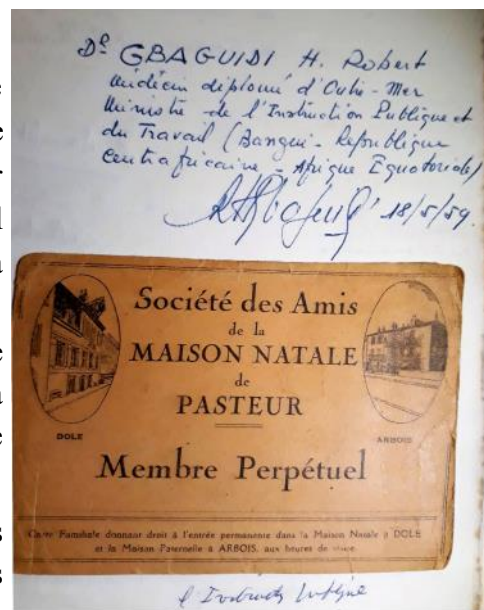 Dr GBAGUIDI H. Robert
Médecin diplomé d'Outre-Mer
Ministre de l'Instruction Publique et
du Travail (Bangui - République
Centrafricaine - Afrique Equatoriale)
18/5/59.
Société des Amis
de la
MAISON NATALE
de
PASTEUR
DOLE
ARBOIS
Membre Perpétuel
Carte Familiale donnant droit à l'entrée permanente dans la Maison Natale à DOLE
et la Maison Paternelle à ARBOIS, aux heures de visite.